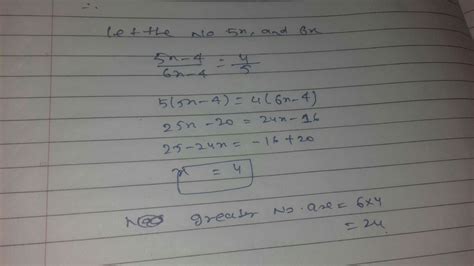 ∴
Let the No 5x, and 6x
5x-4/6x-4 = 4/5
5(5x-4) = 4(6x-4)
25x -20 = 24x-16
25-24x = -16+20
x = 4
greater No. are = 6×4
= 24